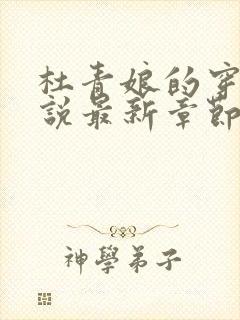 杜青娘的穿
說最新章節
神學弟子